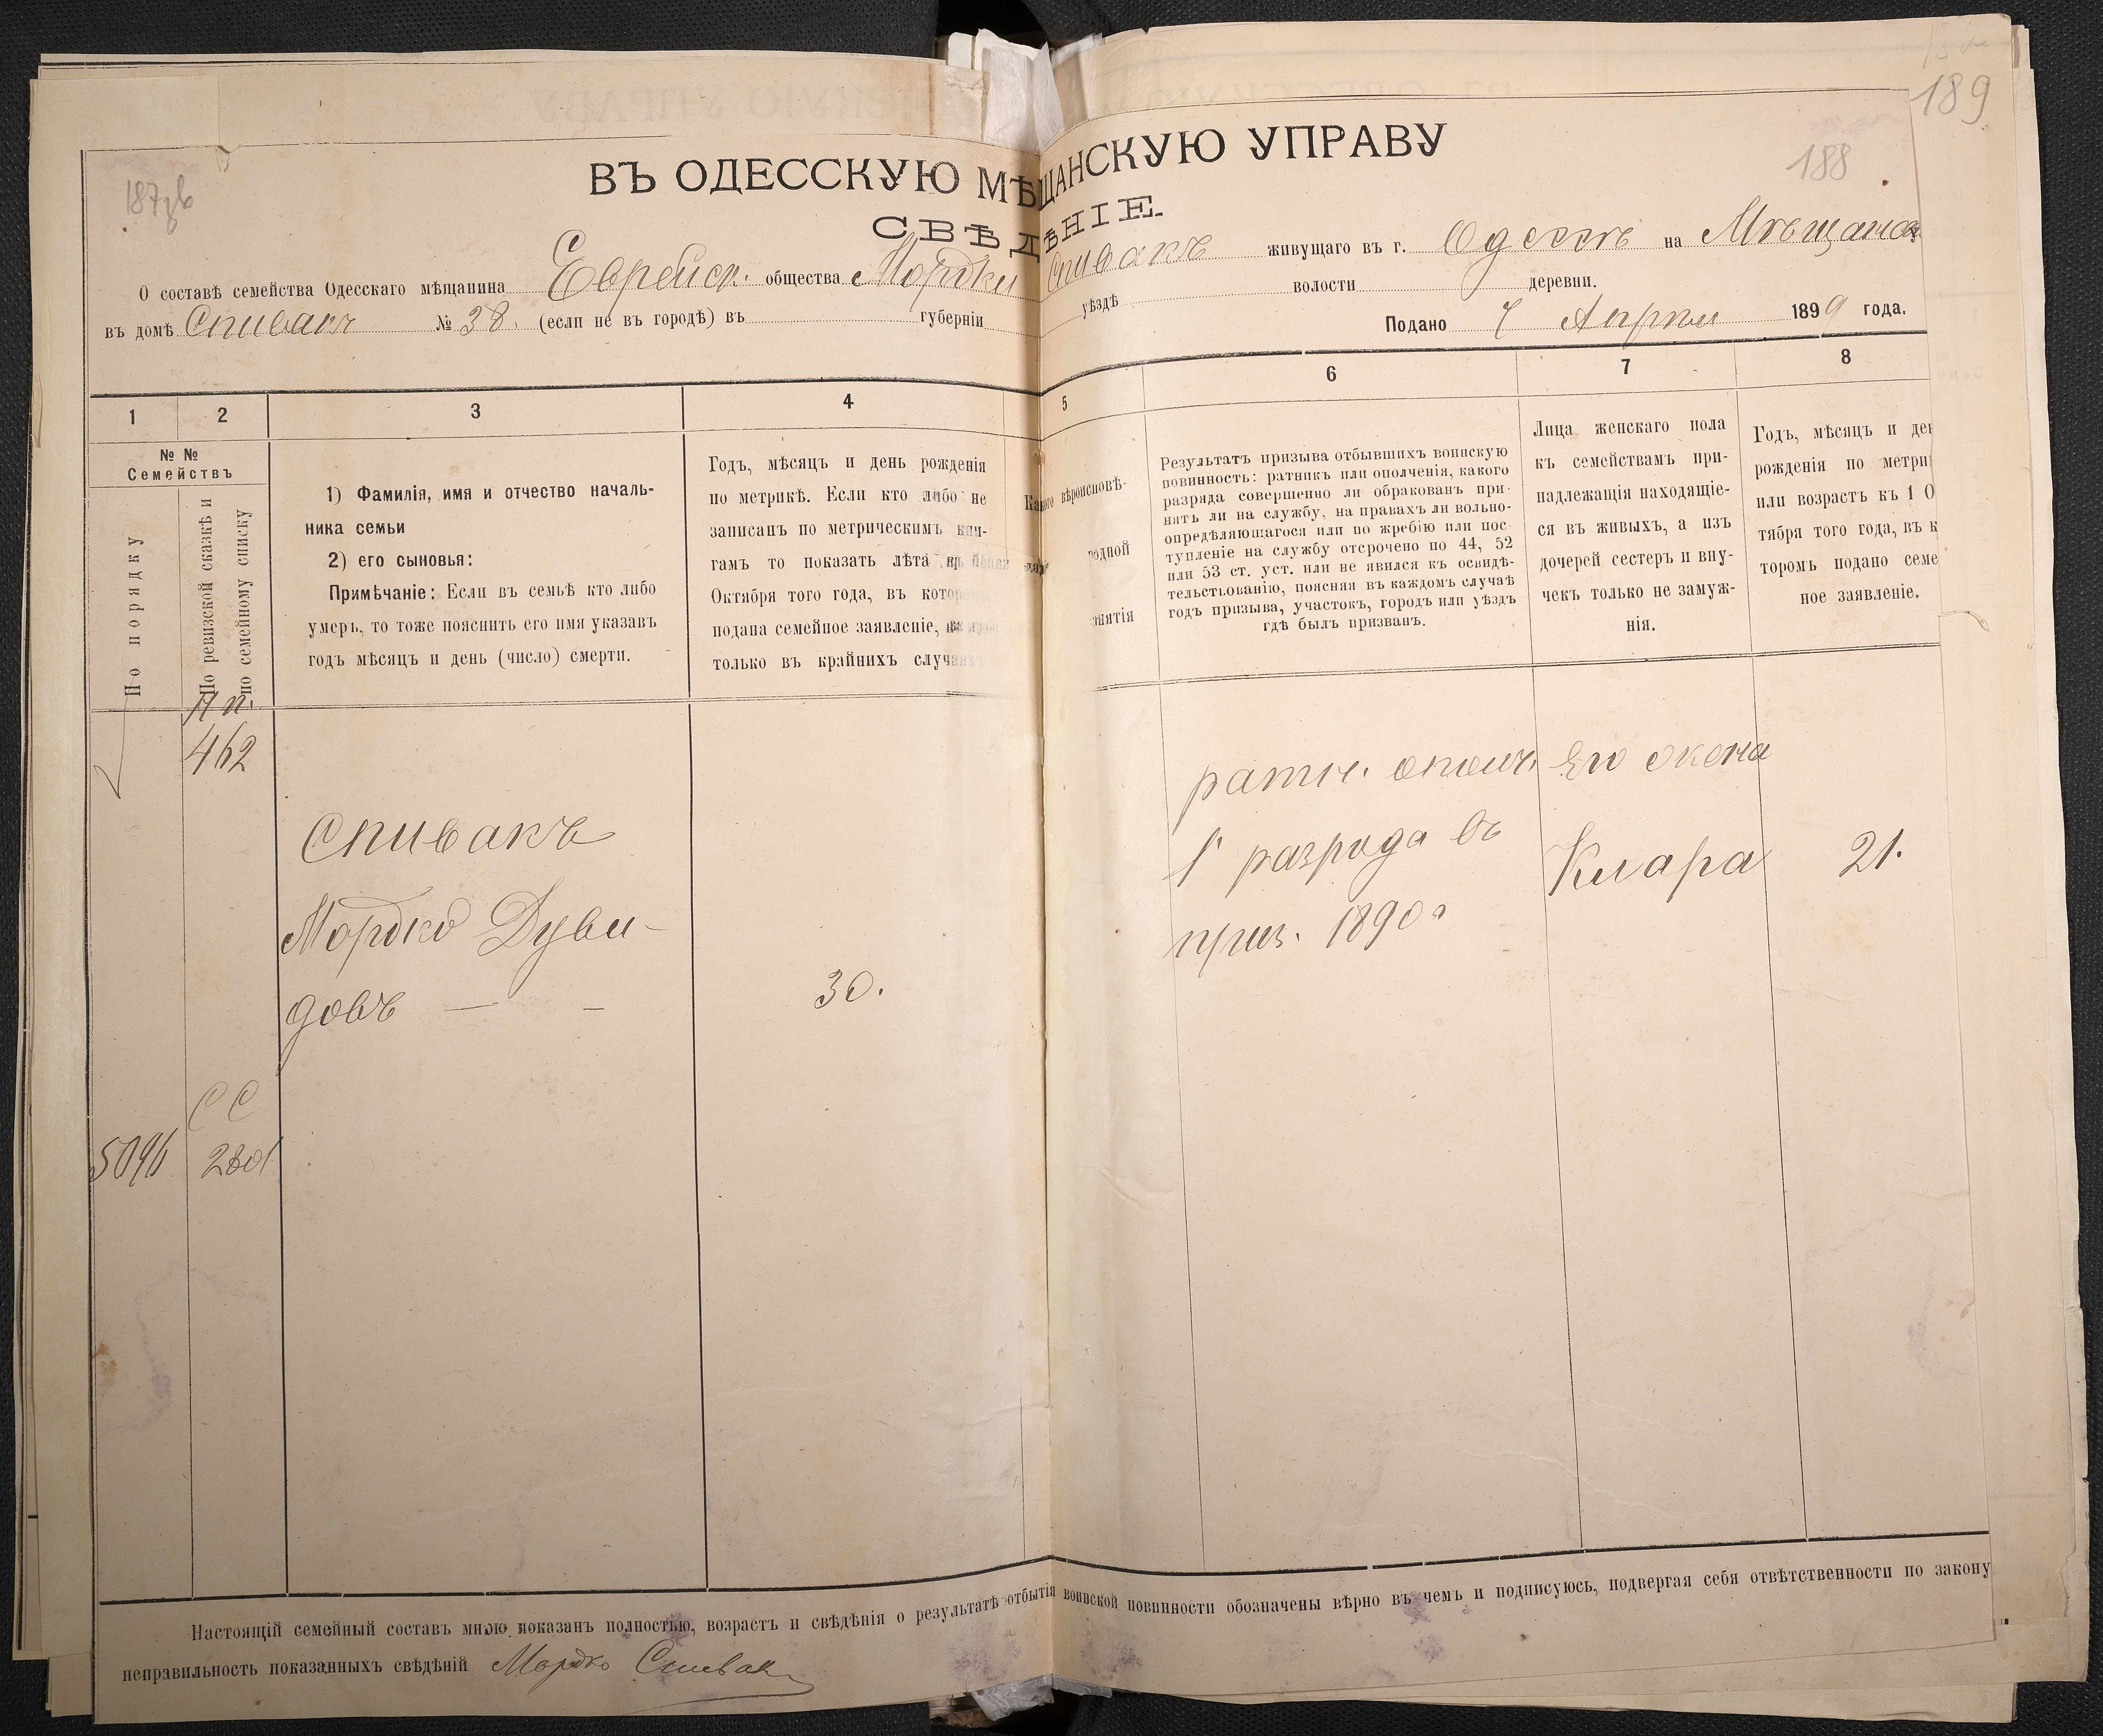 189
187 зв
188
ВЪ ОДЕССКУЮ МѢЩАНСКУЮ УПРАВУ
СВѢДѢНІЕ.
О составѣ семейства Одесскаго мѣщанина Еврейск. общества Мордки Спивакъ живущаго въ г. Одессѣ на Мѣщанс
въ домѣ Спивакъ № 38. (если не въ городѣ) въ губерніи уѣздѣ волости деревни.
Подано 7 Апрѣля 1899 года.
1 2 3 4 5 6 7 8
№ №
Семействъ
По порядку
По ревизской сказкѣ и
по семейному списку
1) Фамилія, имя и отчество началь-
ника семьи
2) его сыновья:
Примѣчаніе: Если въ семьѣ кто либо
умеръ, то тоже пояснить его имя указавъ
годъ мѣсяцъ и день (число) смерти.
Годъ, мѣсяцъ и день рожденія
по метрикѣ. Если кто либо не
записанъ по метрическимъ кни-
гамъ то показать лѣта
Октября того года, въ котор
подана семейное заявленіе,
только въ крайнихъ случаяхъ
Какого вѣроисповѣ-
родной
нятія
Результатъ призыва отбывшихъ воинскую
повинность: ратникъ или ополченія, какого
разряда совершенно ли обракованъ при-
нятъ ли на службу, на правахъ ли вольно-
опредѣляющагося или по жребію или пос-
тупленіе на службу отсрочено по 44, 52
или 53 ст. уст. или не явился къ освидѣ-
тельствованію, поясняя въ каждомъ случаѣ
годъ призыва, участокъ, городъ или уѣздъ
гдѣ былъ призванъ.
Лица женскаго пола
къ семействамъ при-
надлежащія находящіе-
ся въ живыхъ, а изъ
дочерей сестеръ и вну-
чекъ только не замуж-
нія.
Годъ, мѣсяцъ и ден
рожденія по метри
или возрастъ къ 1 О
тября того года, въ к
торомъ подано семе
ное заявленіе.
А п.
462
Спивакъ
Мордко Дуви-
довъ — —
30.
ратн. ополч.
1 разряда въ
приз. 1890 г
Его жена
Клара
21.
СС
5096
Настоящій семейный составъ мною показанъ полностью, возрастъ и свѣдѣнія о результатѣ отбытія воинской повинности обозначены вѣрно въ чемъ и подписуюсь, подвергая себя отвѣтственности по закону
неправильность показанныхъ свѣдѣній Мордко Спивакъ